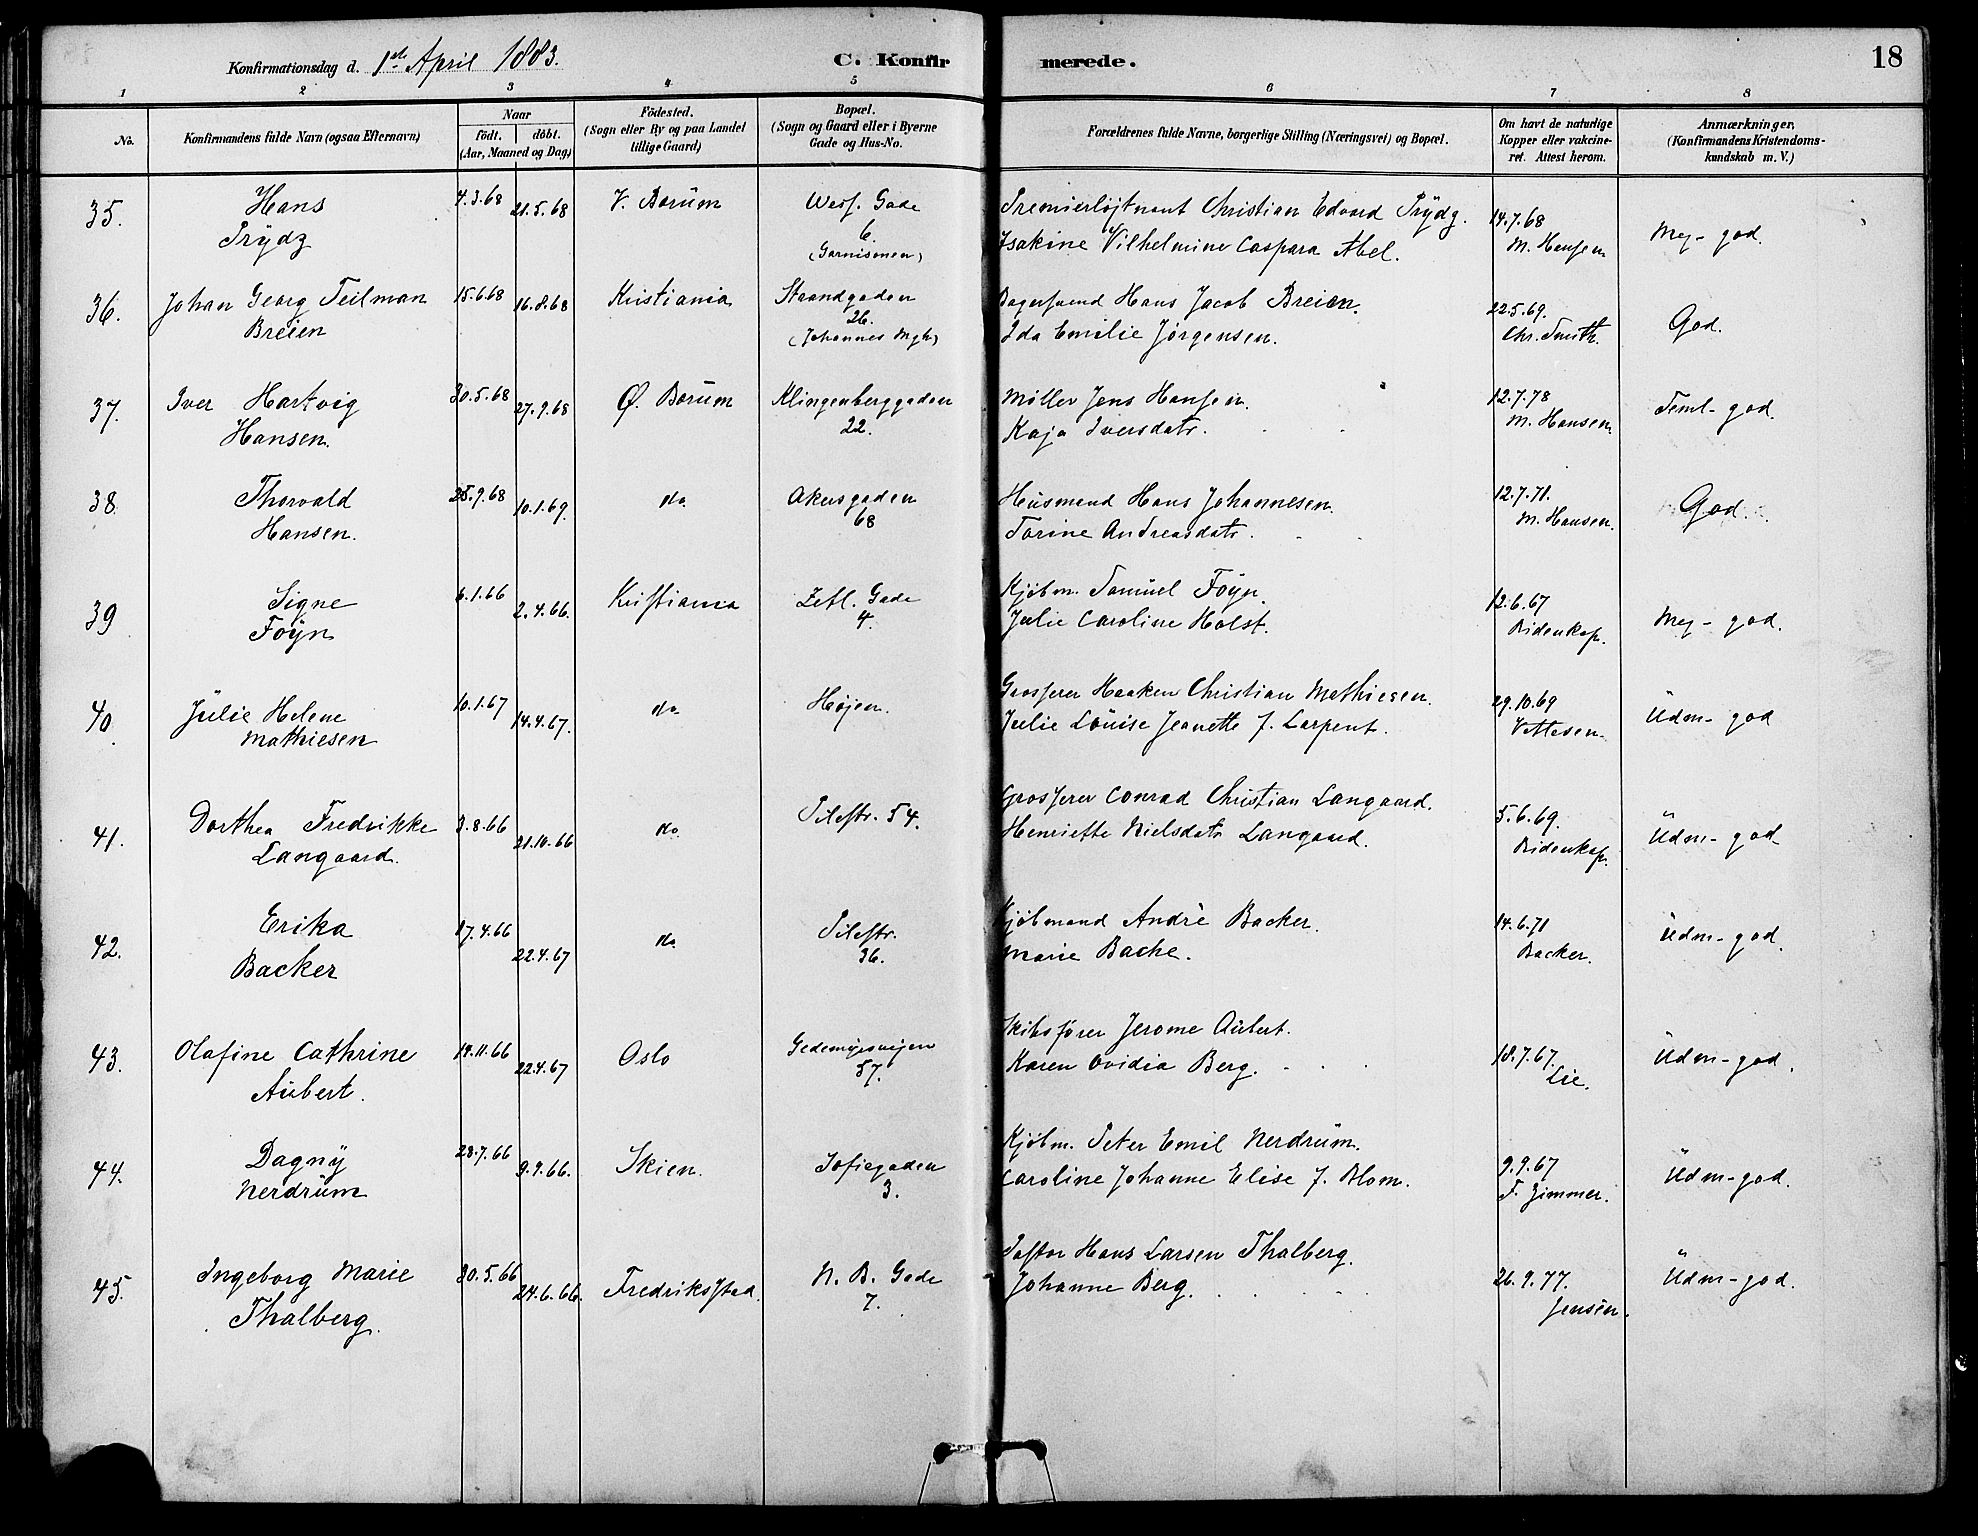 Konfirmationsdag d. 1ste April 1883.
C. Konfirmerede.
18
1 2 3 4 5 6 7 8
No.
Konfirmandens fulde Navn (ogsaa Efternavn)
Naar
födt. döbt.
(Aar, Maaned og Dag)
Födested.
(Sogn eller By og paa Landet
tillige Gaard)
Bopæl.
(Sogn og Gaard eller i Byerne
Gade og Hus-No.
Forældrenes fulde Navne, borgerlige Stilling (Næringsvei) og Bopæl.
Om havt de naturlige
Kopper eller vakcine-
ret. Attest herom.
Anmærkninger,
(Konfirmandens Kristendoms-
kundskab m. V.)
35. Hans
Prydz
4.3.68 21.5.68 V. Bærum
Wess. Gade
6.
(Garnisonen)
Premierløjtnant Christian Edvard Prydz.
Isakine Vilhelmine Caspara Abel.
14.7.68
M. Hansen
Meg- god.
36. Johan Georg Teilman
Breien
15.6.68 16.8.68 Kristiania
Strandgaden
26.
(Johannes Mgh)
Hans Jacob Breien.
Ida Emilie Jørgensen.
22.5.69.
Chr. Smith.
God.
37. Iver Hartvig
Hansen.
30.5.68 27.9.68 Ø. Bærum
Klingenberggaden
22.
Møller Jens Hansen.
Kaja Iversdatr.
12.7.78
M. Hansen.
Teml- god.
38 Thorvald
Hansen.
25.9.68 10.1.69. do.
Akersgaden
68
Husmand Hans Johannesen.
Torine Andreasdatr.
12.7.71.
M. Hansen.
God.
39 Signe
Føyn
6.1.66 2.4.66. Kristiania
Zetl. Gade
4.
Kjøbm. Samuel Føyn.
Julie Caroline Holst.
12.6.67
Bidenkap.
Meg- god.
40. Julie Helene
Mathiesen
10.1.67 14.4.67. do.
Højen.
Grosserer Haaken Christian Mathiesen.
Julie Louise Jeanette f. Larpent.
29.10.69
Vettesen.
Udm- god
41. Dorthea Fredrikke
Langaard.
3.8.66 21.10.66 do.
Pilestr. 54.
Grosserer Conrad Christian Langaard.
Henriette Nielsdatr Langaard.
5.6.69.
Bidenkap.
Udm- god
42. Erika
Backer
17.4.66 22.4.67 do.
Pilestr.
36.
Kjøbmand Andrè Backer.
Marie Bache.
14.6.71
Backer.
Udm-god.
43. Olafine Cathrine
Aubert.
14.11.66 22.4.67 Oslo
Gedemyrsvejen
57.
Skibsfører Jerome Aubert.
Karen Ovidia Berg.
18.7.67.
Lie.
Udm-god.
44. Dagny
Nerdrum
28.7.66 9.9.66. Skien.
Sofiegaden
3.
Kjøbm. Peter Emil Nerdrum.
Caroline Johanne Elise f. Blom.
9.9.67
F. Zimmer.
Udm-god.
45. Ingeborg Marie
Thalberg.
30.5.66 24.6.66. Fredriksstad.
N. B. Gade
7.
Pastor Hans Larsen Thalberg.
Johanne Berg.
26.9.77.
Jensen.
Udm-god.